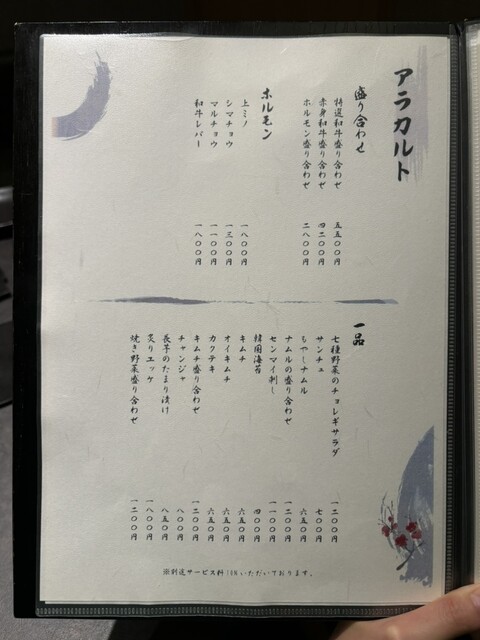 アラカルト
盛り合わせ
特選和牛盛り合わせ 五五〇〇円
赤身和牛盛り合わせ 四二〇〇円
ホルモン盛り合わせ 二八〇〇円
ホルモン
上ミノ 一八〇〇円
シマチョウ 一三〇〇円
マルチョウ 一一〇〇円
和牛レバー 一八〇〇円
一品
七種野菜のチョレギサラダ 一二〇〇円
サンチュ 七〇〇円
もやしナムル 六五〇円
ナムルの盛り合わせ 一二〇〇円
センマイ刺し 一一〇〇円
韓国海苔 四〇〇円
キムチ 六五〇円
オイキムチ 六五〇円
カクテキ 六五〇円
キムチ盛り合わせ 一二〇〇円
チャンジャ 八〇〇円
長芋のたまり漬け 八五〇円
炙りユッケ 一八〇〇円
焼き野菜盛り合わせ 一二〇〇円
※別途サービス料10%いただいております。